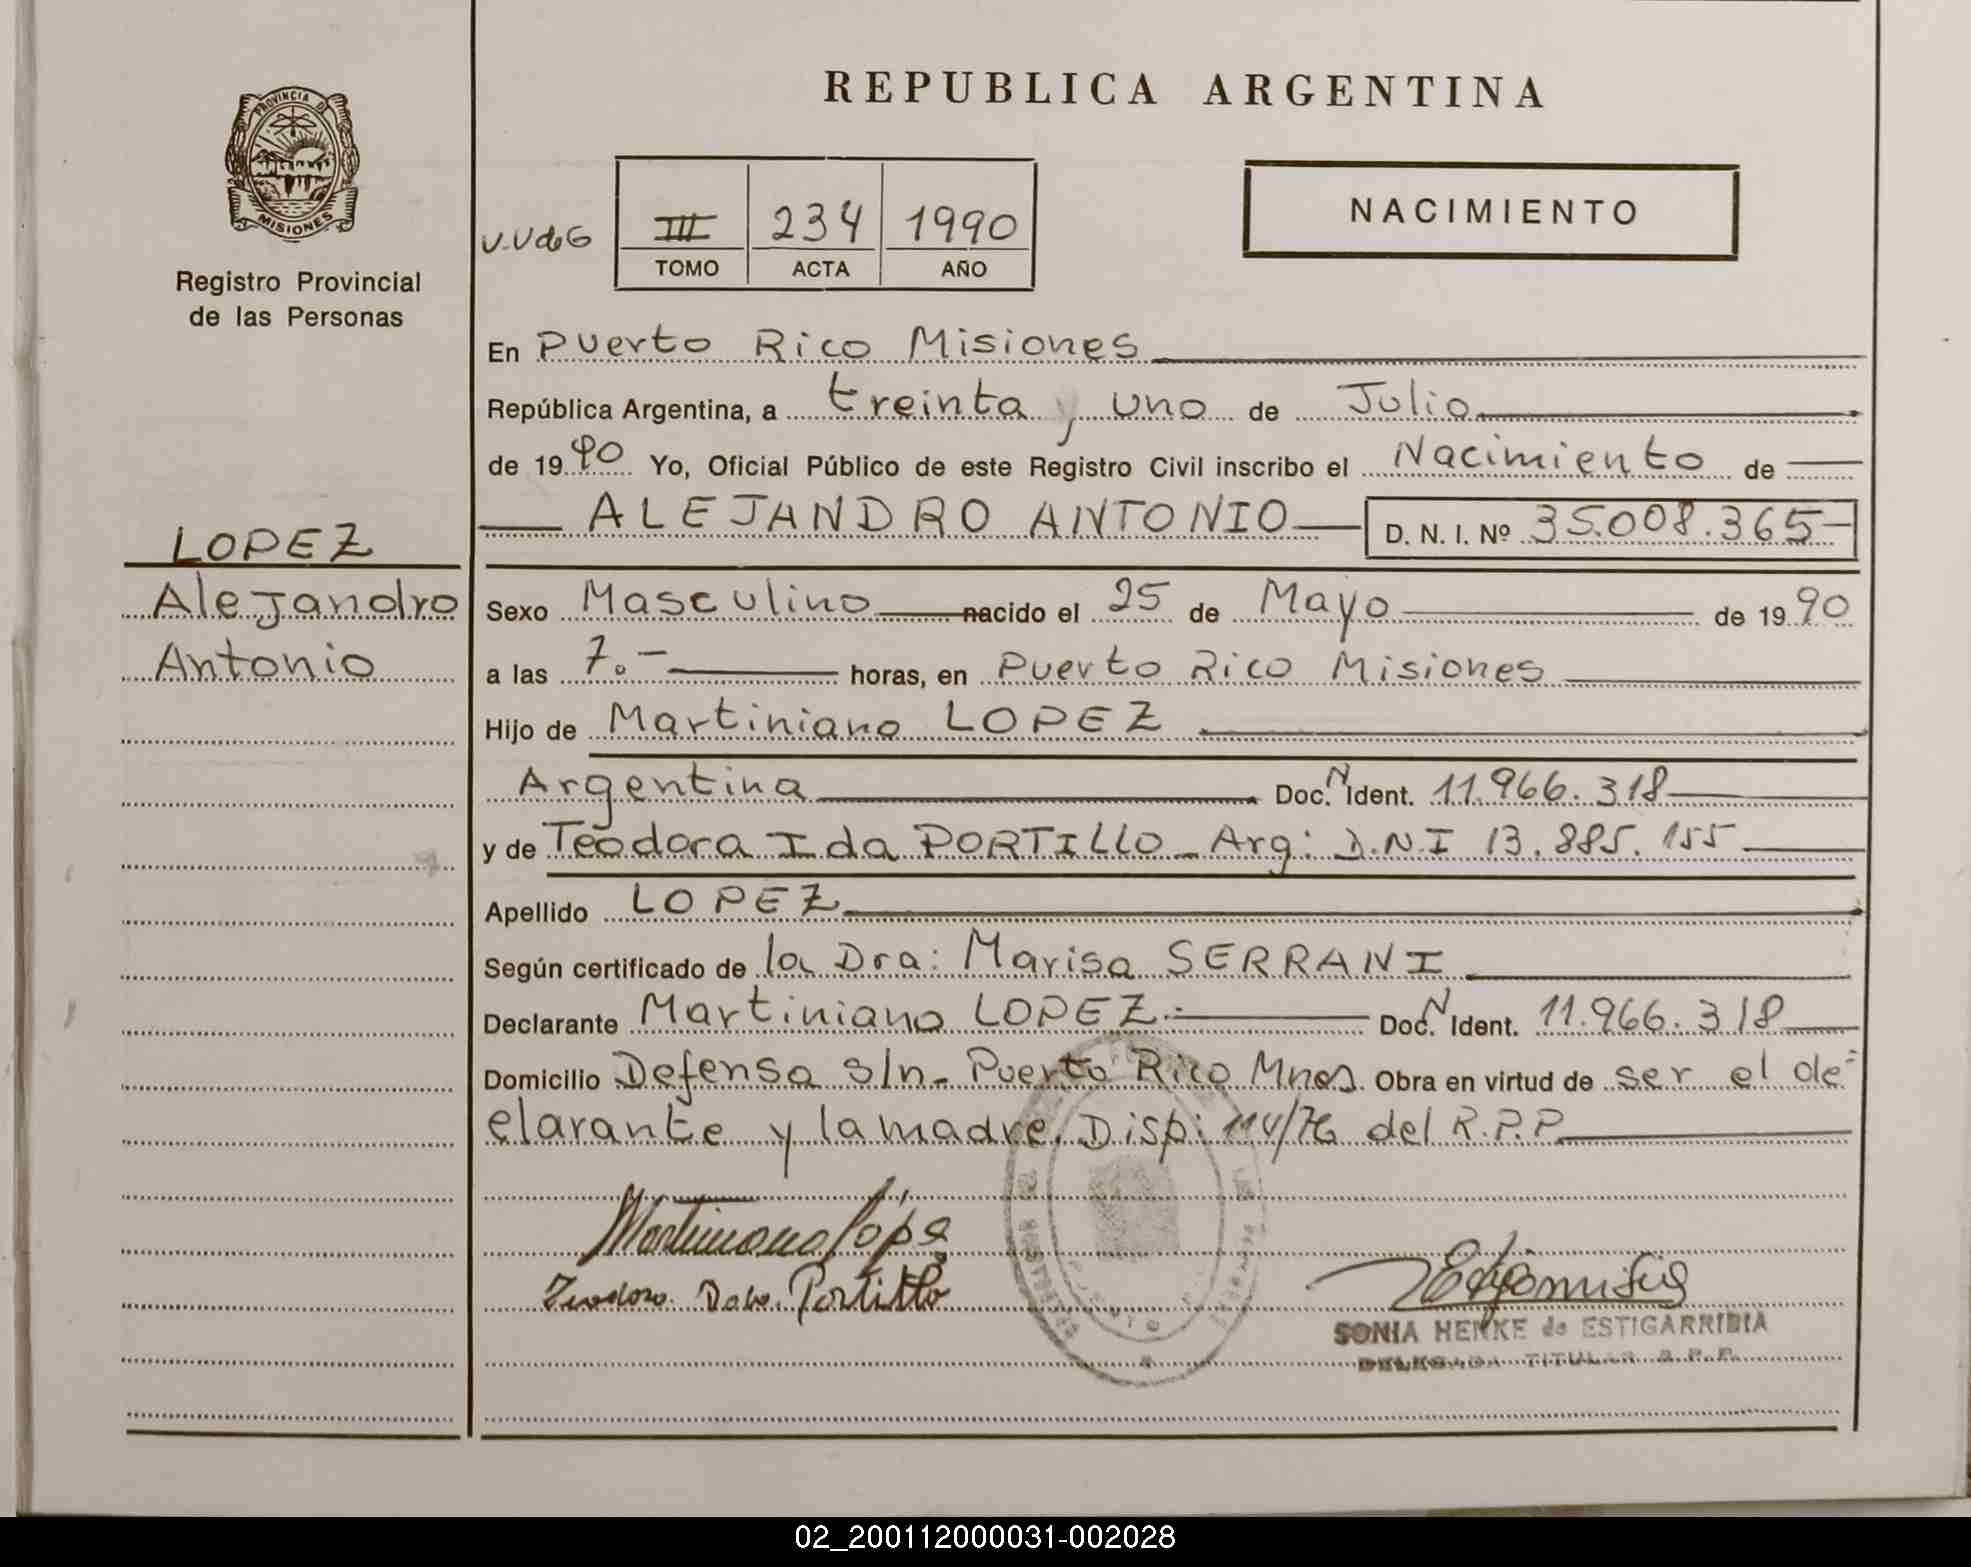 REPUBLICA ARGENTINA
PROVINCIA DE
MISIONES
Registro Provincial
de las Personas
V.V de G
III 234 1990
TOMO ACTA AÑO
NACIMIENTO
En Puerto Rico Misiones
República Argentina, a treinta y uno de Julio
de 1990 Yo, Oficial Público de este Registro Civil inscribo el Nacimiento de
ALEJANDRO ANTONIO D. N. I. Nº 35.008.365-
LOPEZ
Alejandro
Antonio
Sexo Masculino nacido el 25 de Mayo de 1990
a las 7.- horas, en Puerto Rico Misiones
Hijo de Martiniano LOPEZ
Argentina Doc. N Ident. 11.966.318
y de Teodora Ida PORTILLO - Arg: D.N.I 13.885.155
Apellido LOPEZ
Según certificado de la Dra: Marisa SERRANI
Declarante Martiniano LOPEZ.- Doc. N Ident. 11.966.318
Domicilio Defensa s/n- Puerto Rico Mnes. Obra en virtud de ser el de=
clarante y la madre. Disp: 114/76 del R.P.P
Martiniano López
Teodora Portillo
SONIA HENKE de ESTIGARRIBIA
DELEGADA TITULAR R.P.P.
02_200112000031-002028